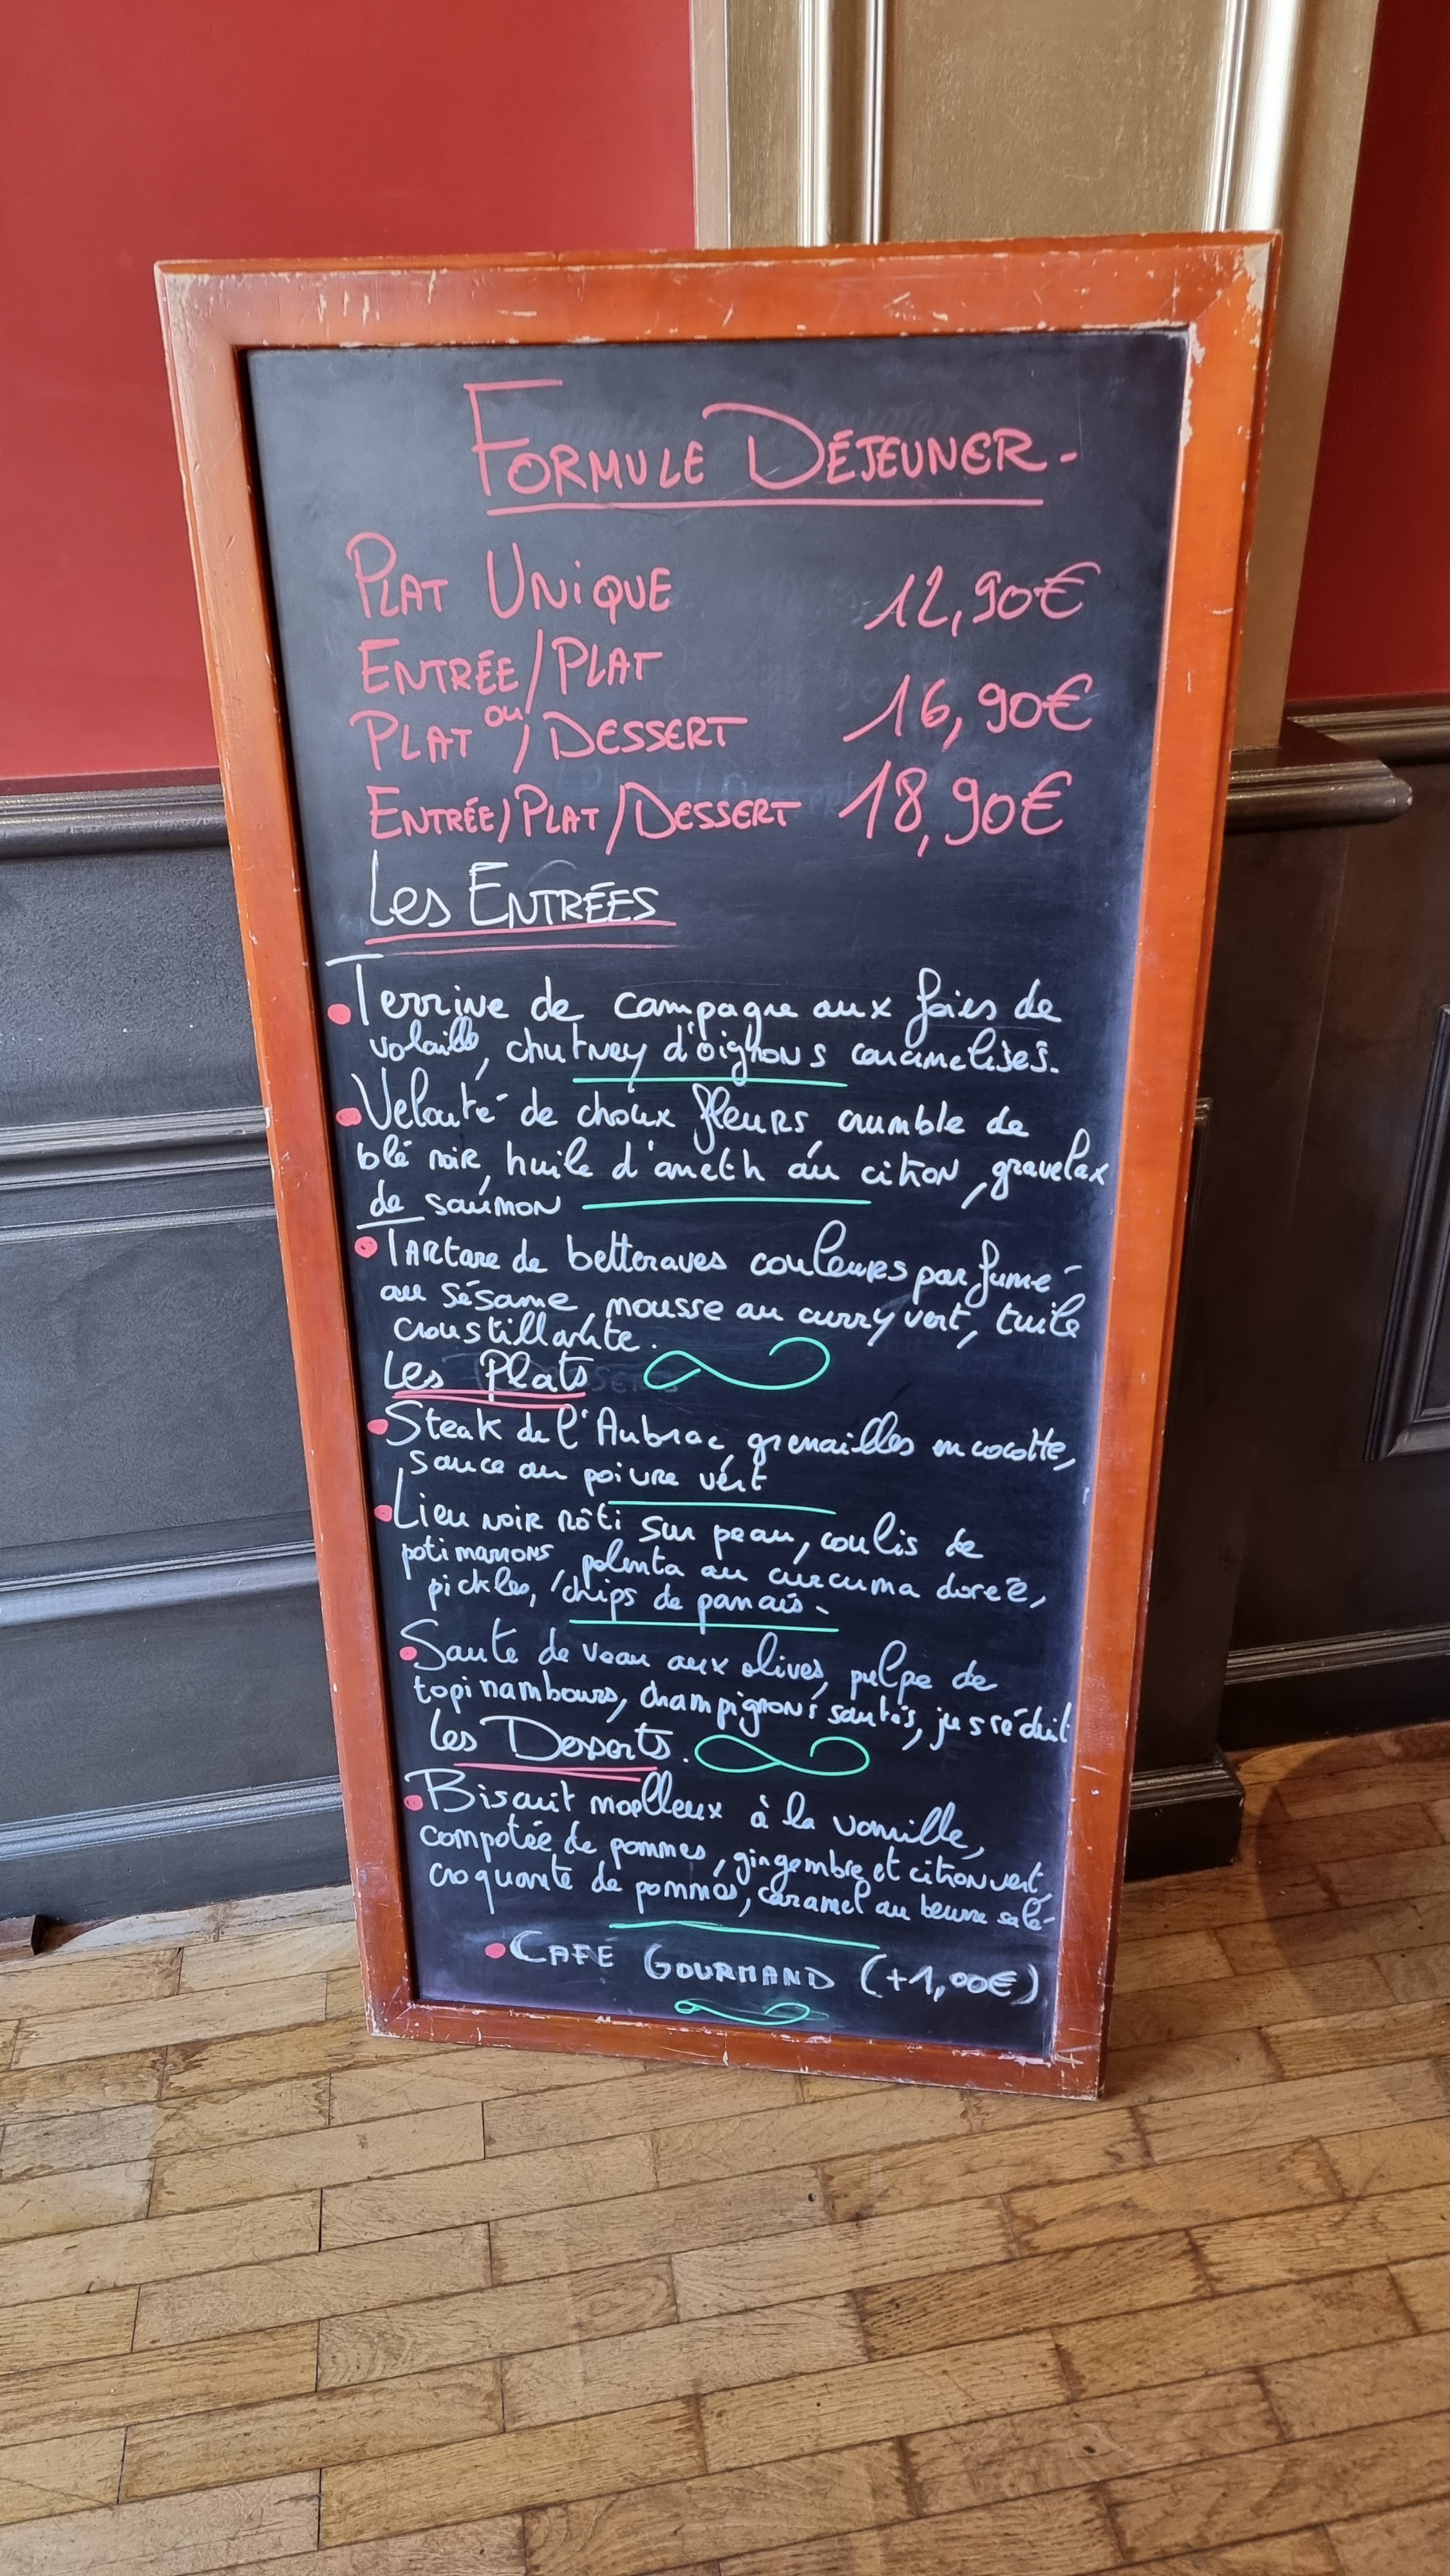 FORMULE DÉJEUNER-
PLAT UNIQUE 12,90€
ENTRÉE/PLAT
ou
PLAT/DESSERT 16,90€
ENTRÉE/PLAT/DESSERT 18,90€
Les ENTRÉES
• Terrine de campagne aux foies de
volaille, chutney d'oignons caramelisés.
• Velouté de choux fleurs crumble de
blé noir, huile d'aneth au citron, gravelax
de saumon
• Tartare de betteraves couleurs parfumé
au sésame, mousse au curry vert, tuile
croustillante.
Les Plats
• Steak de l'Aubrac, grenailles en cocotte,
sauce au poivre vert
• Lieu noir rôti sur peau, coulis de
potimarrons, polenta au curcuma dorée,
pickles, chips de panais.
• Sauté de veau aux olives, pulpe de
topinambours, champignons sautés, jus réduit
Les Desserts.
• Biscuit moelleux à la vanille,
compotée de pommes, gingembre et citron vert,
croquante de pommes, caramel au beurre salé-
• CAFÉ GOURMAND (+1,00€)